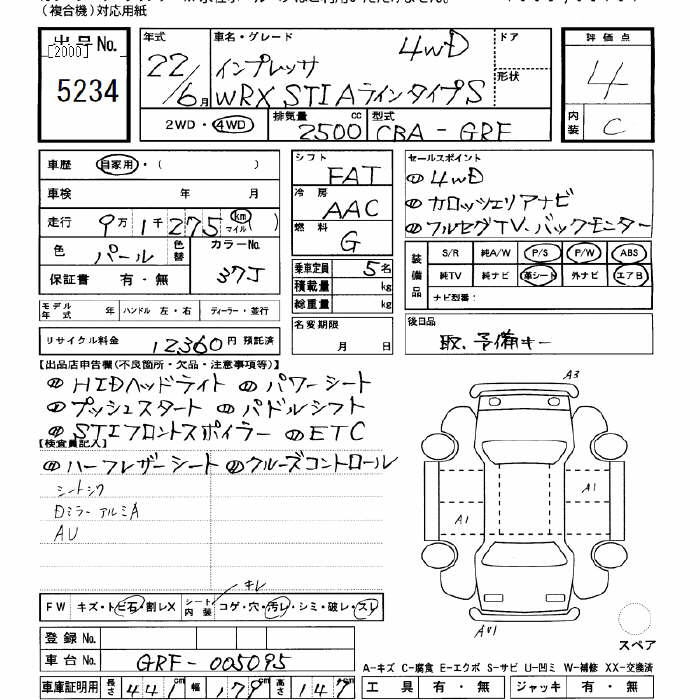 (複合機)対応用紙
出品No. 年式 車名・グレード 4WD ドア 評価点
[2000] 22/6月 インプレッサ 形状 4
5234 WRX STI AラインタイプS 内装 C
2WD・4WD 排気量 2500 cc 型式 CBA-GRF
車歴 自家用・( ) シフト FAT セールスポイント
車検 年 月 冷房 AAC 4WD
走行 9万1千275 km マイル( ) 燃料 G カロッツェリアナビ
フルセグTV、バックモニター
色 パール 色替 カラーNo. 37J 乗車定員 5名
保証書 有・無 積載量 kg
総重量 kg
装備品 S/R 純A/W P/S P/W ABS
純TV 純ナビ 革シート 外ナビ エアB
ナビ型番:
モデル年式 年 ハンドル 左・右 ディーラー・並行
名変期限 月 日
後日品 取、予備キー
リサイクル料金 12360 円 預託済
【出品店申告欄(不良箇所・欠品・注意事項等)】
HIDヘッドライト パワーシート
プッシュスタート パドルシフト
STIフロントスポイラー ETC
【検査員記入】
ハーフレザーシート クルーズコントロール
シートシワ
Dミラー アルミA
AU
A3
A1
A1
AU1
キレ
FW キズ・トビ石・割レX シート内装 コゲ・穴・汚レ・シミ・破レ・スレ
登録No.
車台No. GRF-005095
スペア
A-キズ C-腐食 E-エクボ S-サビ U-凹ミ W-補修 XX-交換済
車庫証明用 長さ 441 幅 179 高さ 147 工具 有・無 ジャッキ 有・無